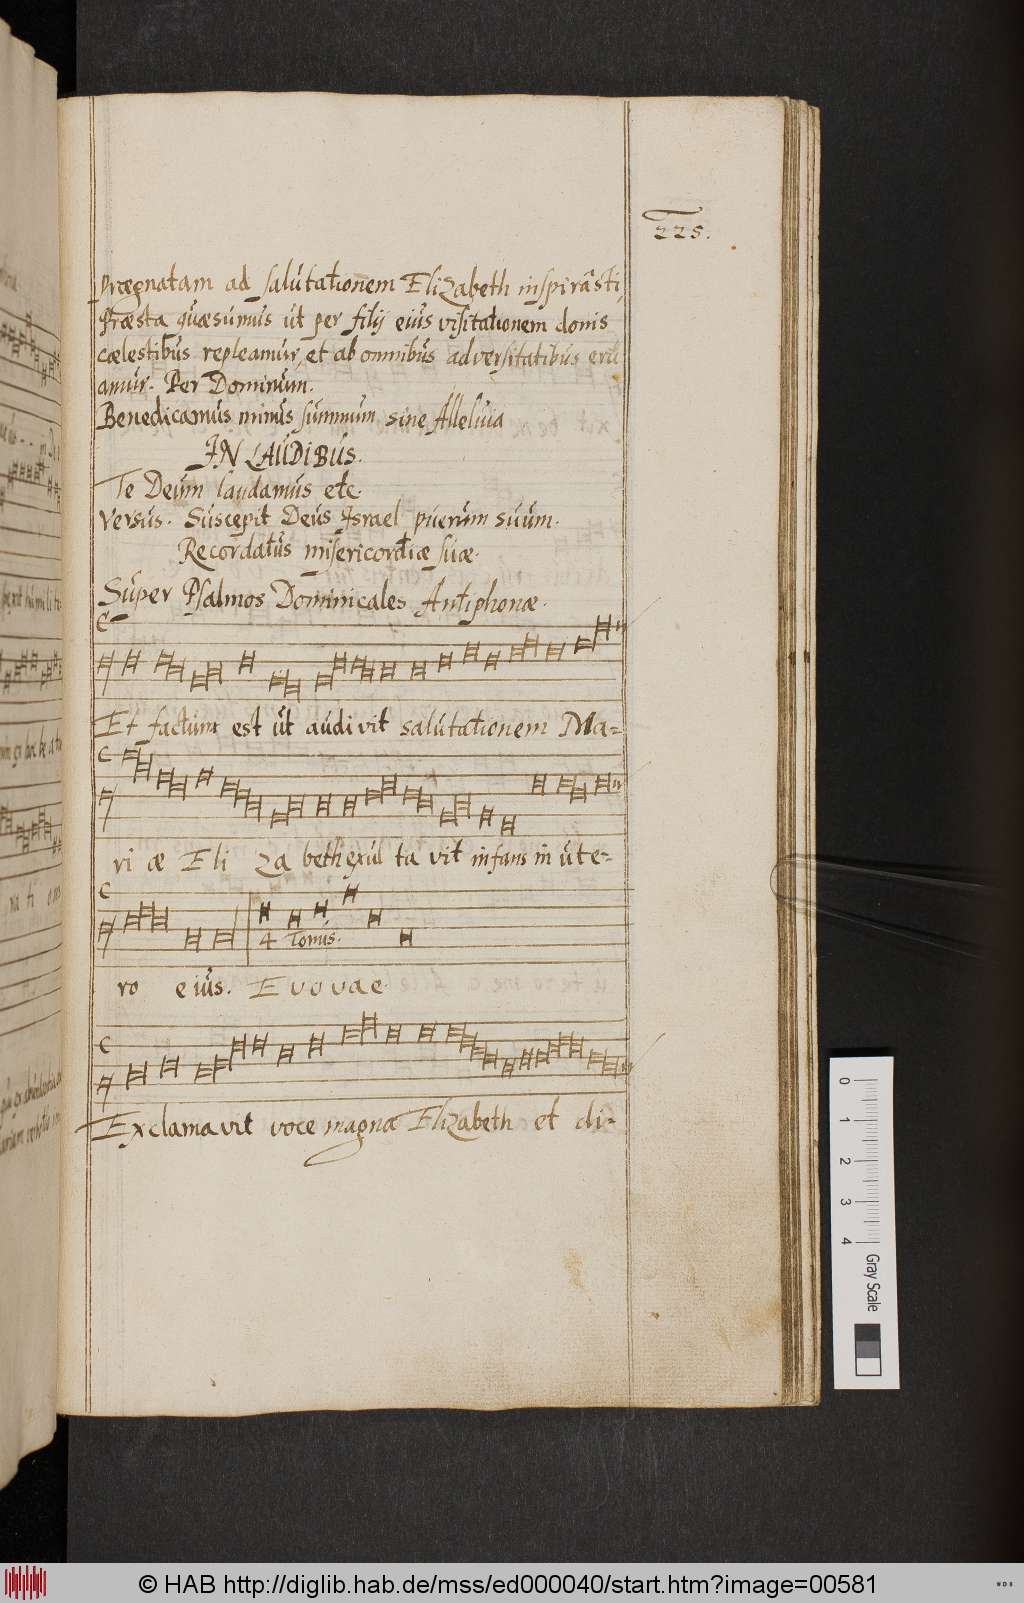 225.
Prægnatam ad salutationem Elizabeth inspirâsti,
Præsta quæsumus ut per filij eius visitationem donis
cælestibus repleamur, et ab omnibus adversitatibus eru
amur. Per Dominum.
Benedicamus minus summum sine Alleluia
IN LAUDIBUS.
Te Deum laudamus etc
Versus. Suscepit Deus Israel puerum suum.
Recordatus misericordiæ suæ.
Super Psalmos Dominicales Antiphonæ.
Et factum est ut audivit salutationem Ma-
ri æ Eli za beth exul ta vit infans in ute-
4 Tonus.
ro eius. E v o v a e
Exclamavit voce magna Elizabeth et di-
0 1 2 3 4 Gray Scale
© HAB http://diglib.hab.de/mss/ed000040/start.htm?image=00581